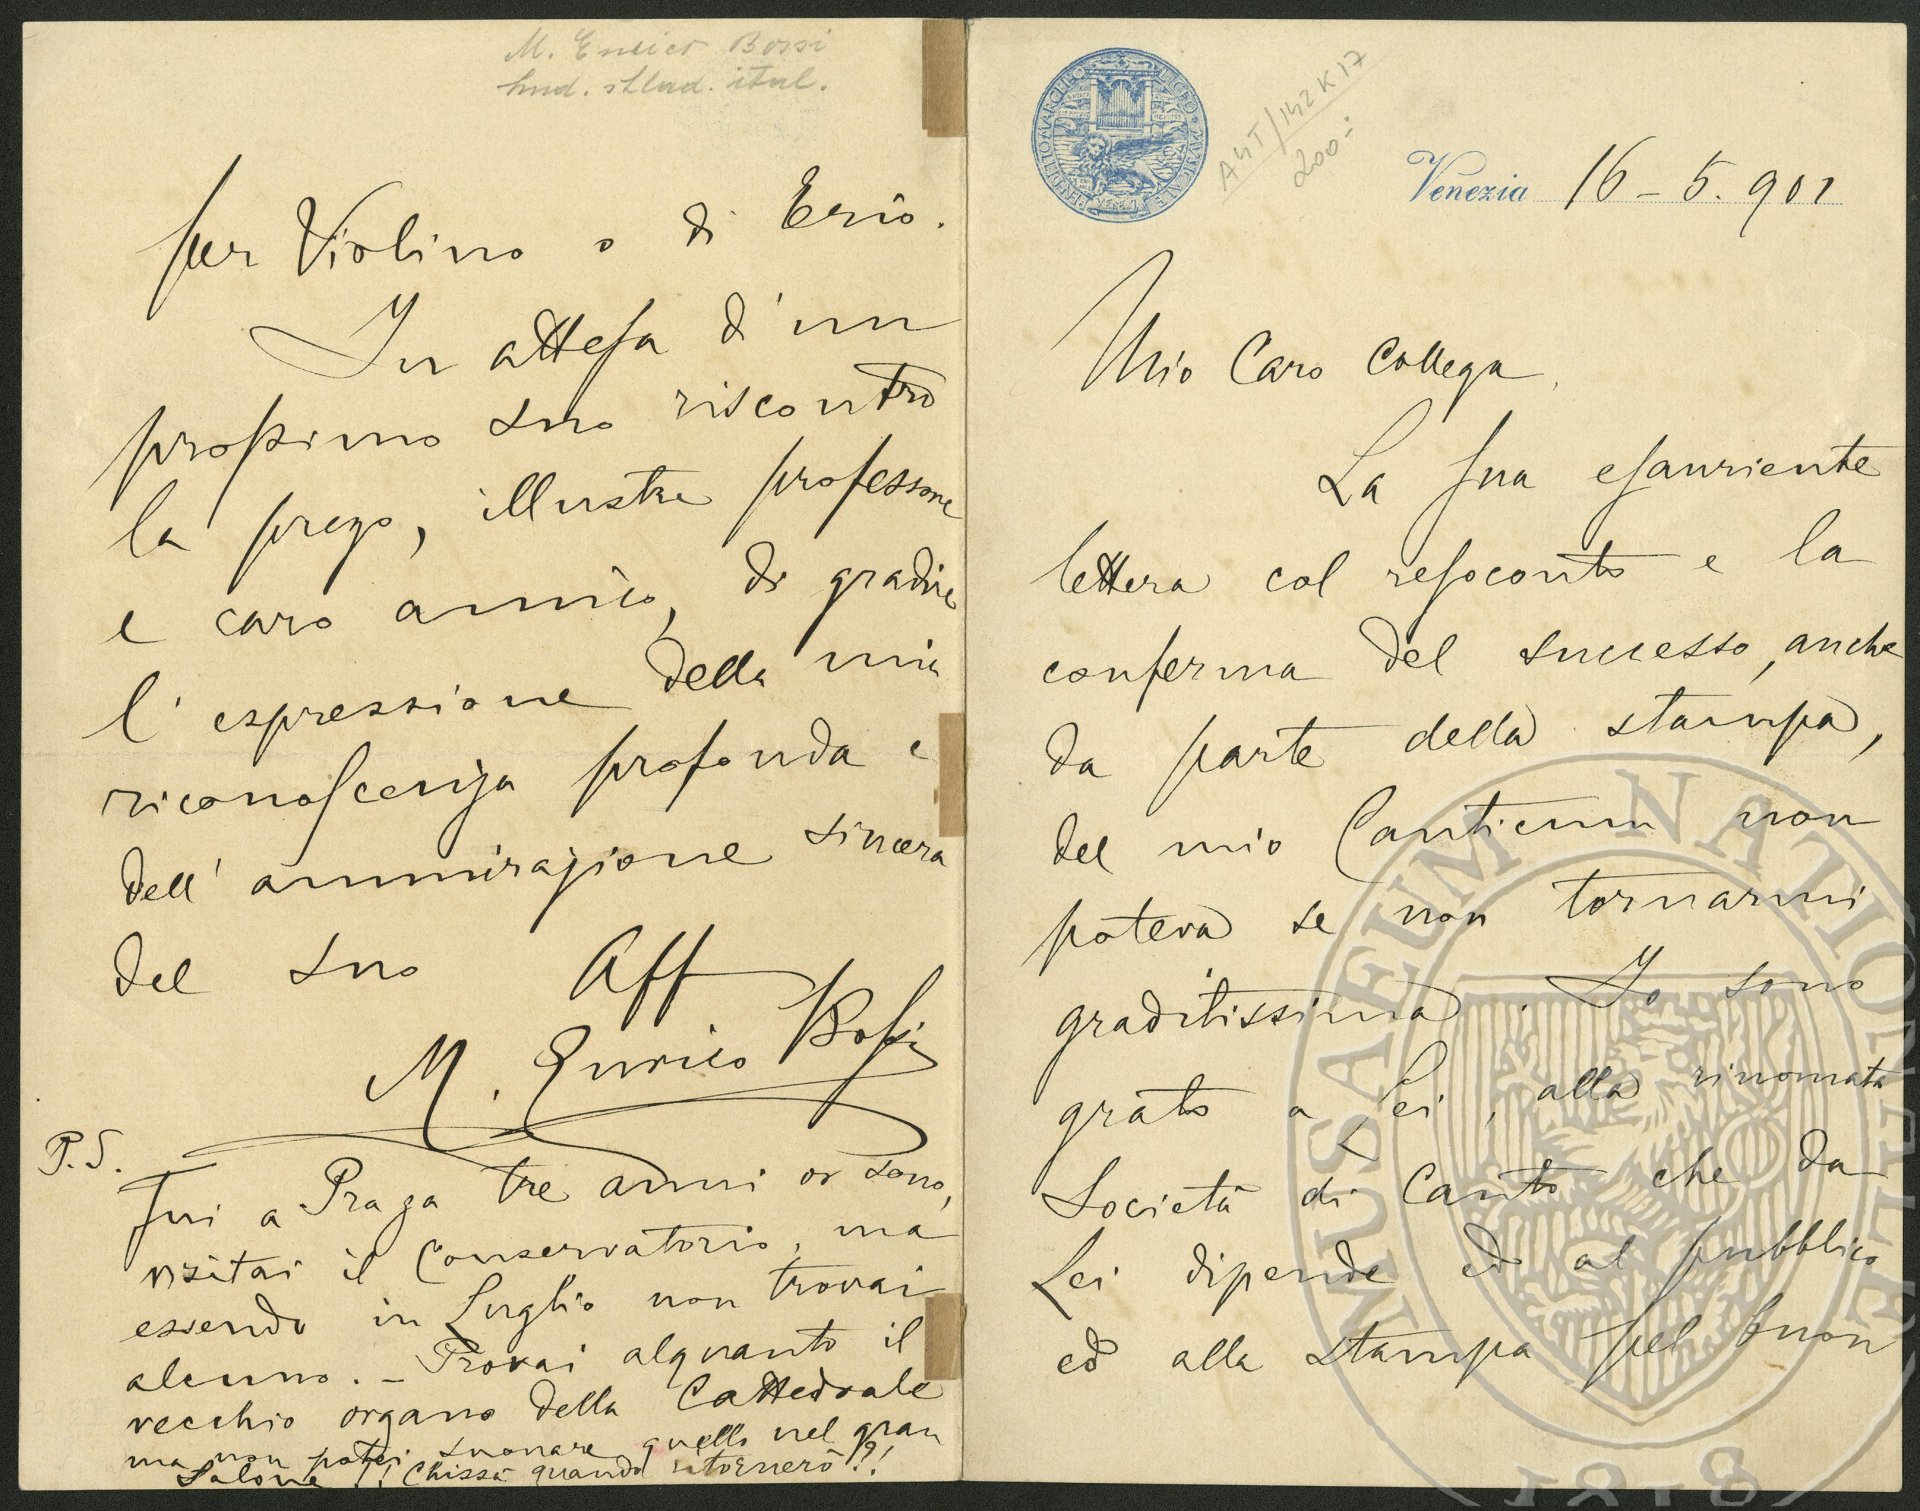 M. Enrico Bossi
hud. sklad. ital.
per Violino o di Trio.
In attesa d'un
prossimo suo riscontro
la prego, illustre professore
e caro amico, di gradire
l'espressione della mia
riconoscenza profonda e
dell'ammirazione sincera
del suo Aff
M. Enrico Bossi
P.S.
Fui a Praga tre anni or sono,
visitai il Conservatorio, ma
essendo in Luglio non trovai
alcuno. – Provai alquanto il
vecchio organo della Cattedrale
ma non potei suonare quello nel gran
Salone !! Chissà quando ritornerò?!
BENEDETTO MARCELLO LICEO MUSICALE
VENEZIA
200:-
Venezia 16 – 5. 901
Mio Caro Collega,
La sua esauriente
lettera col resoconto e la
conferma del successo, anche
da parte della stampa,
del mio Canticum non
poteva se non tornarmi
graditissima. Io sono
grato a Lei, alla rinomata
Società di Canto che da
Lei dipende ed al pubblico
ed alla stampa pel buon
MUSAEUM NATIONALE
1818